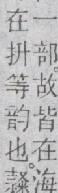 一部。故皆在海
在抍等韵也。